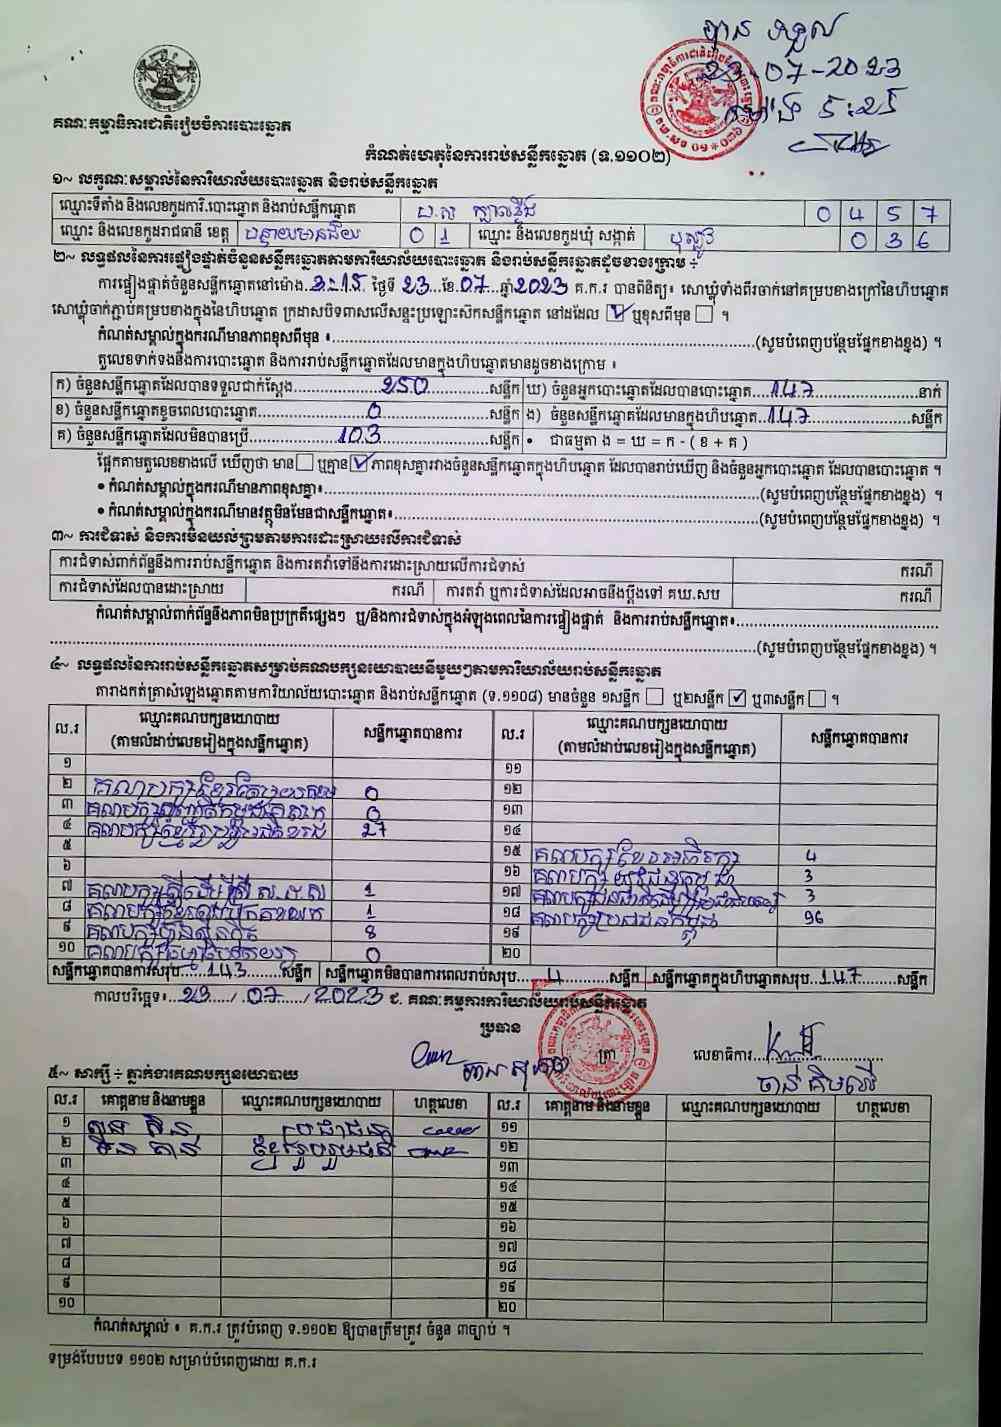 បាន ទទួល
23-07-2023
ម៉ោង ៥:២៥
គណៈកម្មាធិការជាតិរៀបចំការបោះឆ្នោត
កំណត់ហេតុនៃការរាប់សន្លឹកឆ្នោត (ទ.១១០២)
១~ លក្ខណៈសម្គាល់នៃការិយាល័យបោះឆ្នោត និងរាប់សន្លឹកឆ្នោត
ឈ្មោះទីតាំង និងលេខកូដការិ.បោះឆ្នោត និងរាប់សន្លឹកឆ្នោត 0 4 5 7
ឈ្មោះ និងលេខកូដរាជធានី ខេត្ត បន្ទាយមានជ័យ 0 1 ឈ្មោះ និងលេខកូដឃុំ សង្កាត់ 0 3 6
២~ លទ្ធផលនៃការផ្ទៀងផ្ទាត់ចំនួនសន្លឹកឆ្នោតតាមការិយាល័យបោះឆ្នោត និងរាប់សន្លឹកឆ្នោតដូចខាងក្រោម ÷
ការផ្ទៀងផ្ទាត់ចំនួនសន្លឹកឆ្នោតនៅម៉ោង 3:15 ថ្ងៃទី 23 ខែ 07 ឆ្នាំ 2023 គ.ក.រ បានពិនិត្យ៖ សោឃ្លុំទាំងពីរចាក់នៅគម្របខាងក្រៅនៃហិបឆ្នោត
សោឃ្លុំចាក់ភ្ជាប់គម្របខាងក្នុងនៃហិបឆ្នោត ក្រដាសបិទពាសលើសន្ទះប្រឡោះស៊កសន្លឹកឆ្នោត នៅដដែល ☑ ឬខុសពីមុន ☐ ។
កំណត់សម្គាល់ក្នុងករណីមានភាពខុសពីមុន ៖ (សូមបំពេញបន្ថែមផ្នែកខាងខ្នង) ។
តួលេខទាក់ទងនឹងការបោះឆ្នោត និងការរាប់សន្លឹកឆ្នោតដែលមានក្នុងហិបឆ្នោតមានដូចខាងក្រោម ៖
ក) ចំនួនសន្លឹកឆ្នោតដែលបានទទួលជាក់ស្តែង 250 សន្លឹក ឃ) ចំនួនអ្នកបោះឆ្នោតដែលបានបោះឆ្នោត 147 នាក់
ខ) ចំនួនសន្លឹកឆ្នោតខូចពេលបោះឆ្នោត 0 សន្លឹក ង) ចំនួនសន្លឹកឆ្នោតដែលមានក្នុងហិបឆ្នោត 147 សន្លឹក
គ) ចំនួនសន្លឹកឆ្នោតដែលមិនបានប្រើ 103 សន្លឹក • ជាធម្មតា ង = ឃ = ក - ( ខ + គ )
ផ្អែកតាមតួលេខខាងលើ ឃើញថា មាន ☐ ឬគ្មាន ☑ ភាពខុសគ្នារវាងចំនួនសន្លឹកឆ្នោតក្នុងហិបឆ្នោត ដែលបានរាប់ឃើញ និងចំនួនអ្នកបោះឆ្នោត ដែលបានបោះឆ្នោត ។
• កំណត់សម្គាល់ក្នុងករណីមានភាពខុសគ្នា៖ (សូមបំពេញបន្ថែមផ្នែកខាងខ្នង) ។
• កំណត់សម្គាល់ក្នុងករណីមានវត្ថុមិនមែនជាសន្លឹកឆ្នោត៖ (សូមបំពេញបន្ថែមផ្នែកខាងខ្នង) ។
៣~ ការជំទាស់ និងការមិនយល់ព្រមតាមការដោះស្រាយលើការជំទាស់
ការជំទាស់ពាក់ព័ន្ធនឹងការរាប់សន្លឹកឆ្នោត និងការតវ៉ាទៅនឹងការដោះស្រាយលើការជំទាស់ ករណី
ការជំទាស់ដែលបានដោះស្រាយ ករណី ការតវ៉ា ឬការជំទាស់ដែលអាចនឹងប្តឹងទៅ គឃ.សប ករណី
កំណត់សម្គាល់ពាក់ព័ន្ធនឹងភាពមិនប្រក្រតីផ្សេងៗ ឬ/និងការជំទាស់ក្នុងអំឡុងពេលនៃការផ្ទៀងផ្ទាត់ និងការរាប់សន្លឹកឆ្នោត៖
(សូមបំពេញបន្ថែមផ្នែកខាងខ្នង) ។
៤~ លទ្ធផលនៃការរាប់សន្លឹកឆ្នោតសម្រាប់គណបក្សនយោបាយនីមួយៗតាមការិយាល័យរាប់សន្លឹកឆ្នោត
តារាងកត់ត្រាសំឡេងឆ្នោតតាមការិយាល័យបោះឆ្នោត និងរាប់សន្លឹកឆ្នោត (ទ.១១០៨) មានចំនួន ១សន្លឹក ☐ ឬ២សន្លឹក ☑ ឬ៣សន្លឹក ☐ ។
ល.រ ឈ្មោះគណបក្សនយោបាយ (តាមលំដាប់លេខរៀងក្នុងសន្លឹកឆ្នោត) សន្លឹកឆ្នោតបានការ ល.រ ឈ្មោះគណបក្សនយោបាយ (តាមលំដាប់លេខរៀងក្នុងសន្លឹកឆ្នោត) សន្លឹកឆ្នោតបានការ
១ ១១
២ 0 ១២
៣ 0 ១៣
៤ 27 ១៤
៥ ១៥ 4
៦ ១៦ 3
៧ 1 ១៧ 3
៨ 1 ១៨ គណបក្សប្រជាជនកម្ពុជា 96
៩ 8 ១៩
១០ 0 ២០
សន្លឹកឆ្នោតបានការសរុប 143 សន្លឹក សន្លឹកឆ្នោតមិនបានការពេលរាប់សរុប 4 សន្លឹក សន្លឹកឆ្នោតក្នុងហិបឆ្នោតសរុប 147 សន្លឹក
កាលបរិច្ឆេទ៖ 23 / 07 / 2023 ជ. គណៈកម្មការការិយាល័យរាប់សន្លឹកឆ្នោត
ប្រធាន
ត្រា
លេខាធិការ
៥~ សាក្សី ÷ ភ្នាក់ងារគណបក្សនយោបាយ
ល.រ គោត្តនាម និងនាមខ្លួន ឈ្មោះគណបក្សនយោបាយ ហត្ថលេខា ល.រ គោត្តនាម និងនាមខ្លួន ឈ្មោះគណបក្សនយោបាយ ហត្ថលេខា
១ ប្រជាជន ១១
២ ១២
៣ ១៣
៤ ១៤
៥ ១៥
៦ ១៦
៧ ១៧
៨ ១៨
៩ ១៩
១០ ២០
កំណត់សម្គាល់ ៖ គ.ក.រ ត្រូវបំពេញ ទ.១១០២ ឱ្យបានត្រឹមត្រូវ ចំនួន ៣ច្បាប់ ។
ទម្រង់បែបបទ ១១០២ សម្រាប់បំពេញដោយ គ.ក.រ